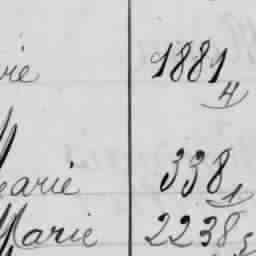 rie 1881 4
Marie 338 1
Marie 2238 5